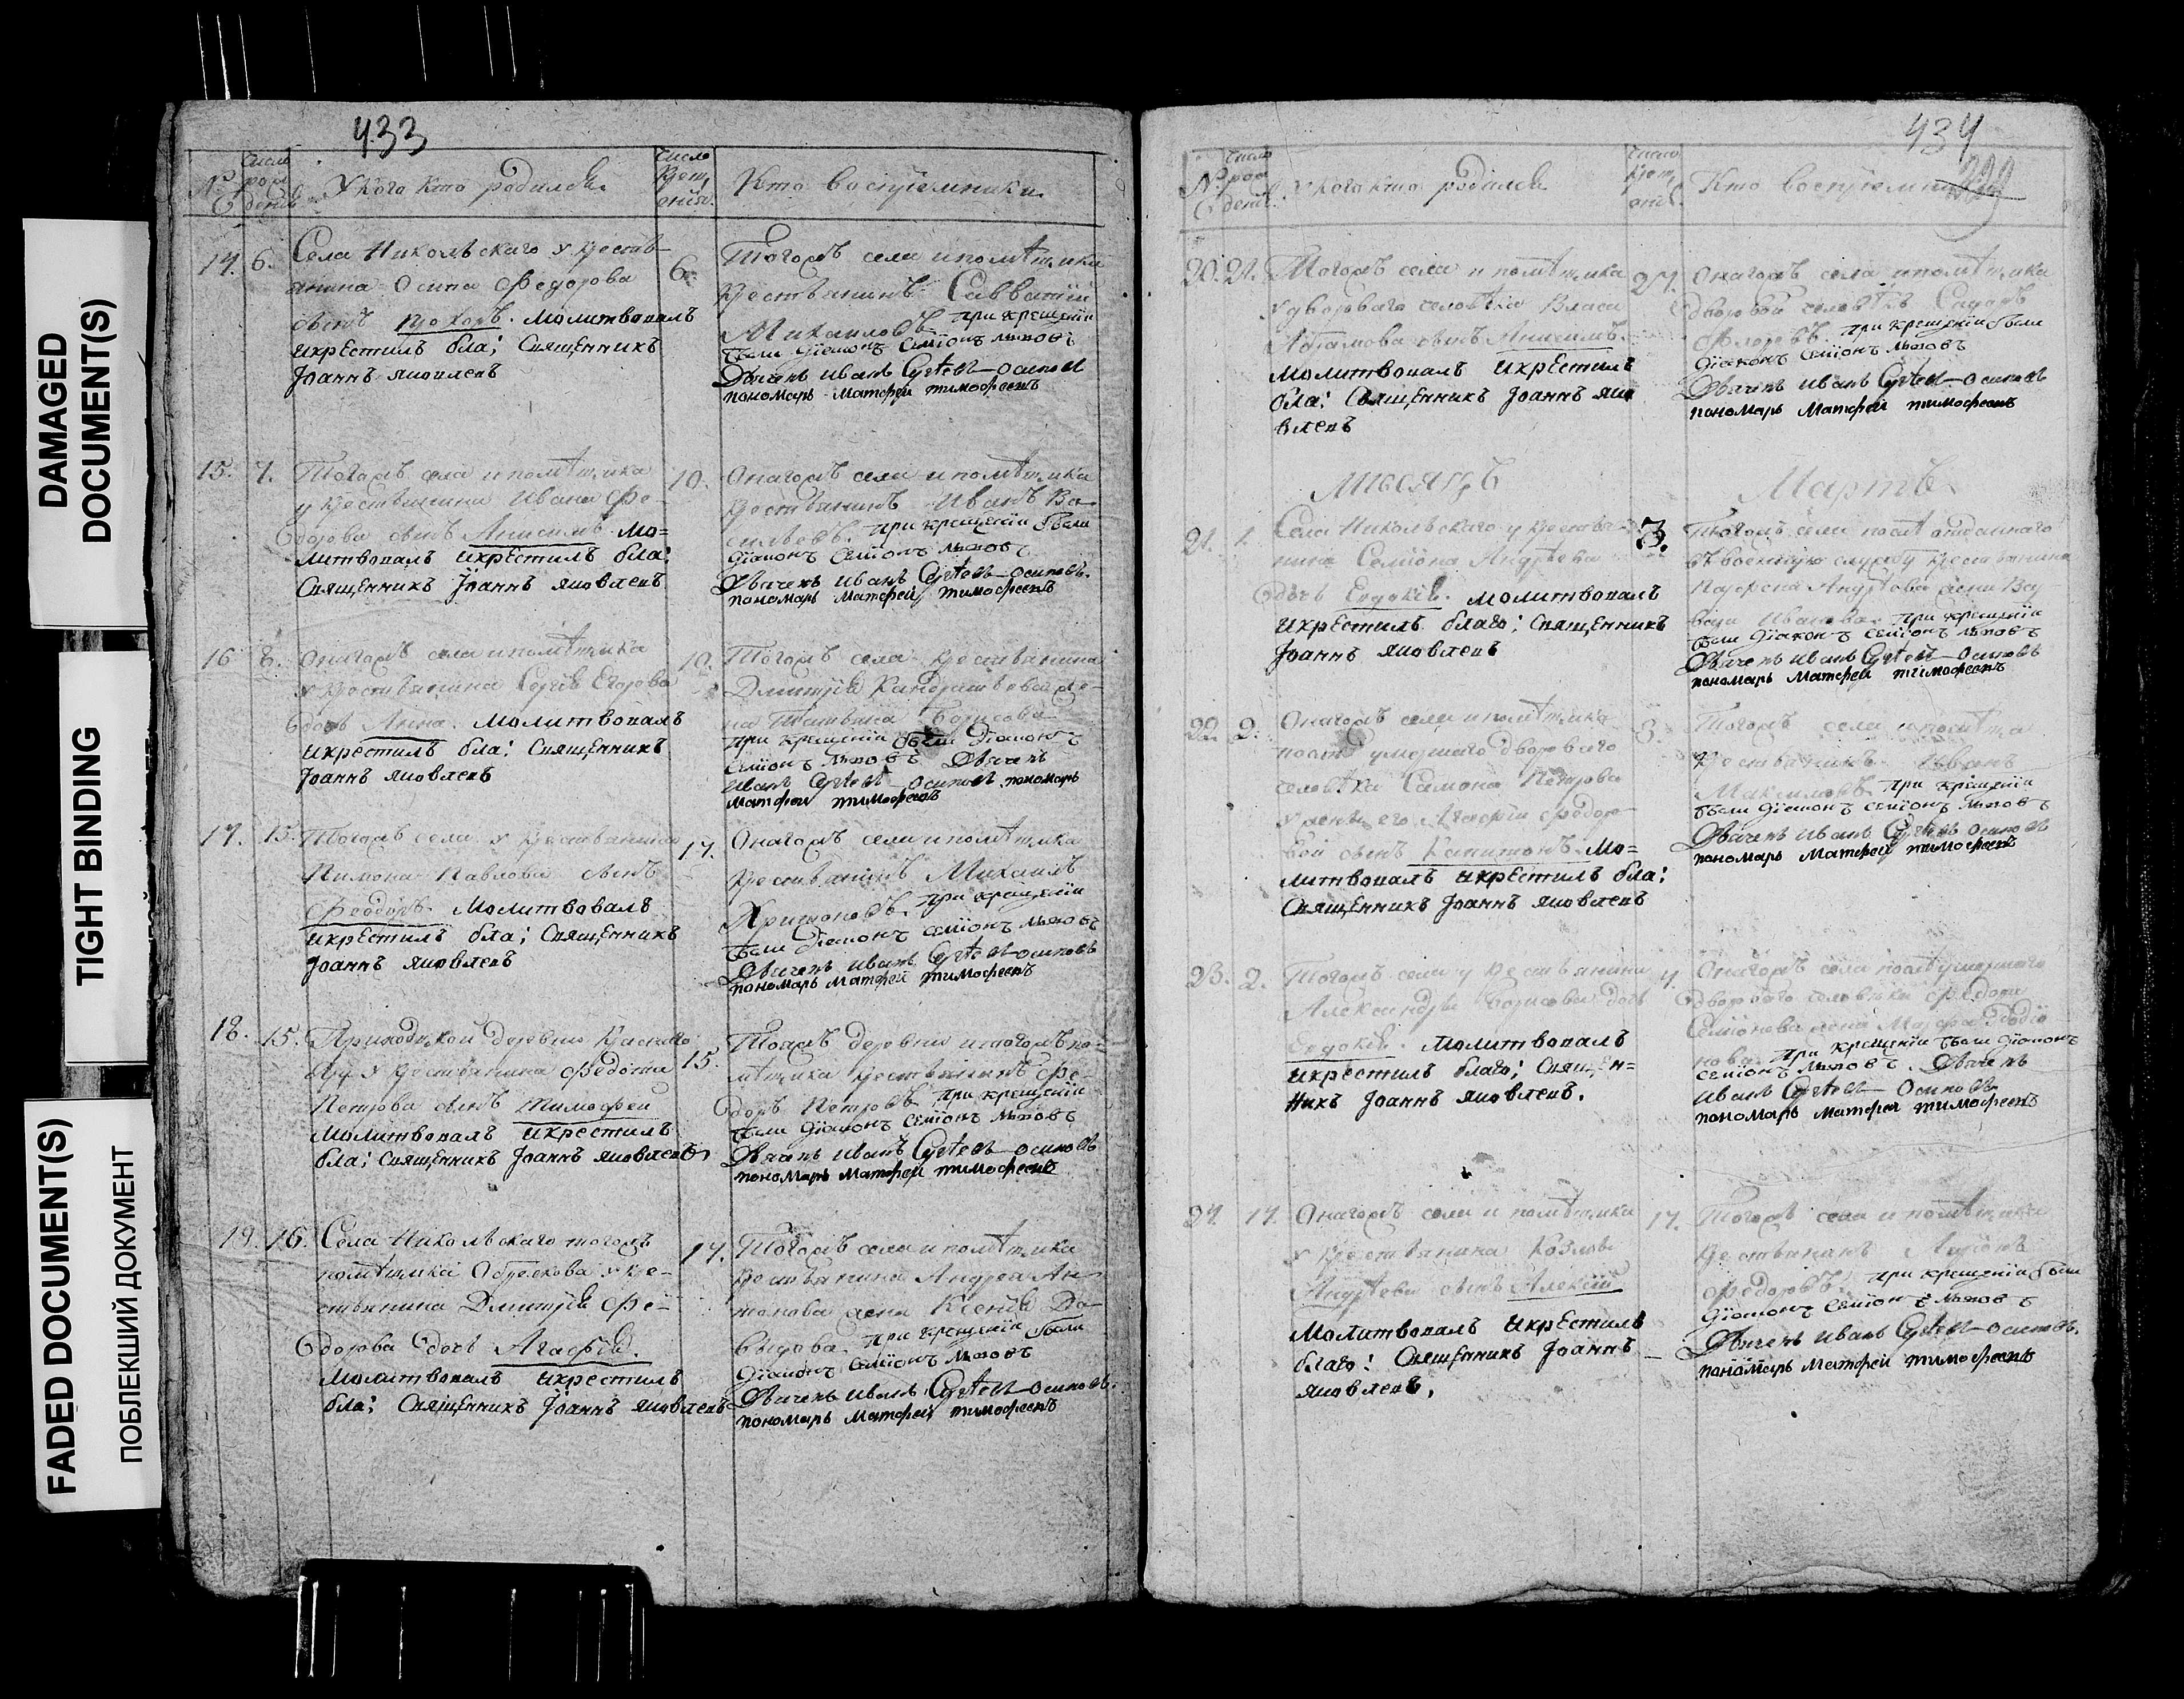 DAMAGED
DOCUMENT(S)
TIGHT BINDING
FADED DOCUMENT(S)
ПОБЛЕКШИЙ ДОКУМЕНТ
433
№ число рож дения У кого кто родился число крещ ения Кто воспріемники
14. 6. Села Никольскаго у крестья
янина Осипа Федорова
сынъ Прохоръ. молитвовалъ
икрестилъ бла: Священникъ
Іоаннъ яковлевъ
6. Тогожъ села ипомѣщика
крестьянинъ Савватій
Михаиловъ при крещеніи
были діаконъ Семіонъ львовъ
Дьячекъ иванъ Сергѣевъ осиповъ
пономарь матфей тимофеевъ
15. 7. Тогожъ села ипомѣщика
у крестьянина Ивана Фе-
дорова сынъ Анисимъ Мо=
литвовалъ икрестилъ бла:
Священникъ Іоаннъ яковлевъ
10. Онагожъ села ипомѣщика
крестьянинъ Иванъ Ва-
сильевъ. при крещеніи были
діаконъ Семіонъ львовъ
Дьячекъ иванъ Сергѣевъ осиповъ.
пономарь матфей тимофеевъ
16 8. Онагожъ села ипомѣщика
у крестьянина Сергія Егорова
дочь Анна. молитвовалъ
икрестилъ бла: Священникъ
Іоаннъ яковлевъ
10. Тогожъ села крестьянина
Дмитрія Кандратьева же-
на Татьяна Борисова
при крещеніи были діаконъ
семіонъ львовъ Дьячекъ
иванъ Сергѣевъ осиповъ пономарь
матфей тимофеевъ
17. 15. Тогожъ села у крестьянина
Пимона Павлова сынъ
Феодоръ. молитвовалъ
икрестилъ бла: Священникъ
Іоаннъ яковлевъ
17. Онагожъ села ипомѣщика
крестьянинъ Михаилъ
при крещеніи
были діаконъ семіонъ львовъ
Дьячекъ иванъ Сергѣевъ осиповъ
пономарь матфей тимофеевъ
18. 15. Приходской деревни
у крестьянина Федота
Петрова сынъ Тимофей
молитвовалъ икрестилъ
бла: Священникъ Іоаннъ яковлевъ
15. Тояжъ деревни итогожъ по-
мѣщика крестьянинъ Фе-
доръ Петровъ при крещеніи
были діаконъ Семіонъ львовъ
Дьячекъ иванъ Сергѣевъ осиповъ
пономарь матфей тимофеевъ
19. 16. Села Никольскаго тогожъ
помѣщика Обрескова у кре-
стьянина Дмитрія Фе-
дорова дочь Агафія.
молитвовалъ икрестилъ
бла: Священникъ Іоаннъ яковлевъ
17. Тогожъ села ипомѣщика
крестьянина Андрея Ан-
тонова жена Ксенія Да-
выдова. при крещеніи были
діаконъ семіонъ львовъ
Дьячекъ иванъ Сергѣевъ осиповъ.
пономарь матфей тимофеевъ
434
№ число рож дені У кого кто родился число крещ енія Кто воспріемники
20. 21. Тогожъ села и помѣщика
у двороваго человѣка Власа
сынъ Анисимъ.
молитвовалъ икрестилъ
бла: Священникъ Іоаннъ яко
влевъ
Онагожъ села ипомѣщика
дворовой человѣкъ Сидоръ
Фроловъ. при крещеніи были
діаконъ семіонъ львовъ
Дьячекъ иванъ Сергѣевъ осиповъ
пономарь матфей тимофеевъ
Мѣсяцъ Мартъ
21. 1. Села Никольскаго у крестья-
нина Семіона Андрѣева
дочь Евдокія. молитвовалъ
икрестилъ благо: Священникъ
Іоаннъ яковлевъ
3. Тогожъ села послѣ отданнаго
въ военную службу крестьянина
Андрѣева жена
Иванова. при крещеніи
были діаконъ семіонъ львовъ
Дьячекъ иванъ Сергѣевъ осиповъ
пономарь матфей тимофеевъ
22. 2. Онагожъ села ипомѣщика
послѣ умершаго двороваго
человѣка Самона Петрова
у жены его Агафіи Федоро
вой сынъ Капитонъ. Мо=
литвовалъ икрестилъ бла:
Священникъ Іоаннъ яковлевъ
3. Тогожъ села ипомѣщика
крестьянинъ Иванъ
Максимовъ. при крещеніи
были діаконъ семіонъ львовъ
Дьячекъ иванъ Сергѣевъ осиповъ
пономарь матфей тимофеевъ
23. 2. Тогожъ села у крестьянина
Александра Борисова дочь
Евдокія. молитвовалъ
икрестилъ благо: Священ=
никъ Іоаннъ яковлевъ.
4. Онагожъ села послѣ умершаго
двороваго человѣка Федота
Семіонова жена Марфа Родіо
нова. при крещеніи были діаконъ
семіонъ львовъ. Дьячекъ
иванъ Сергѣевъ осиповъ
пономарь матфей тимофеевъ
24. 17. Онагожъ села и помѣщика
у крестьянина Козмы
Андрѣева сынъ Алексій
молитвовалъ икрестилъ
благо: Священникъ Іоаннъ
яковлевъ.
17. Тогожъ села и помѣщика
крестьянинъ
Федоровъ. при крещеніи были
діаконъ семіонъ львовъ
Дьячекъ иванъ Сергѣевъ осиповъ.
пономарь матфей тимофеевъ